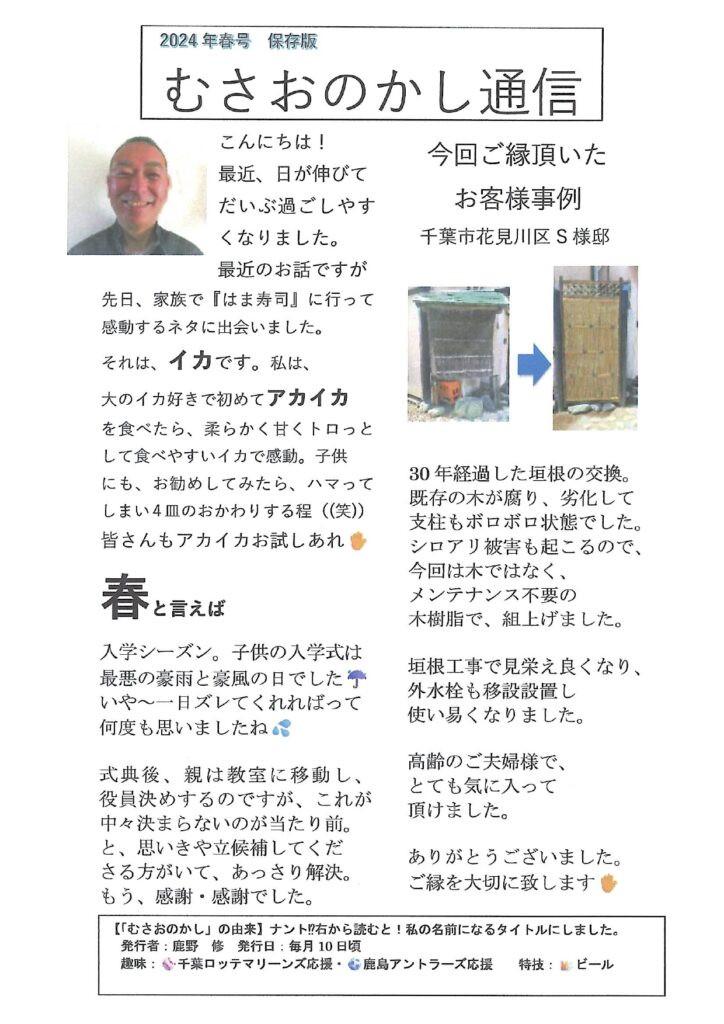 2024年春号　保存版
むさおのかし通信
こんにちは！
最近、日が伸びて
だいぶ過ごしやす
くなりました。
最近のお話ですが
先日、家族で『はま寿司』に行って
感動するネタに出会いました。
それは、イカです。私は、
大のイカ好きで初めてアカイカ
を食べたら、柔らかく甘くトロっと
して食べやすいイカで感動。子供
にも、お勧めしてみたら、ハマって
しまい４皿のおかわりする程（(笑)）
皆さんもアカイカお試しあれ✋
春と言えば
入学シーズン。子供の入学式は
最悪の豪雨と豪風の日でした☂
いや～一日ズレてくれればって
何度も思いましたね💦
式典後、親は教室に移動し、
役員決めするのですが、これが
中々決まらないのが当たり前。
と、思いきや立候補してくだ
さる方がいて、あっさり解決。
もう、感謝・感謝でした。
今回ご縁頂いた
お客様事例
千葉市花見川区S様邸
30年経過した垣根の交換。
既存の木が腐り、劣化して
支柱もボロボロ状態でした。
シロアリ被害も起こるので、
今回は木ではなく、
メンテナンス不要の
木樹脂で、組上げました。
垣根工事で見栄え良くなり、
外水栓も移設設置し
使い易くなりました。
高齢のご夫婦様で、
とても気に入って
頂けました。
ありがとうございました。
ご縁を大切に致します✋
【「むさおのかし」の由来】ナント⁉右から読むと！私の名前になるタイトルにしました。
発行者：鹿野　修　発行日：毎月10日頃
趣味：⚾千葉ロッテマリーンズ応援・⚽鹿島アントラーズ応援　　特技：🍻ビール